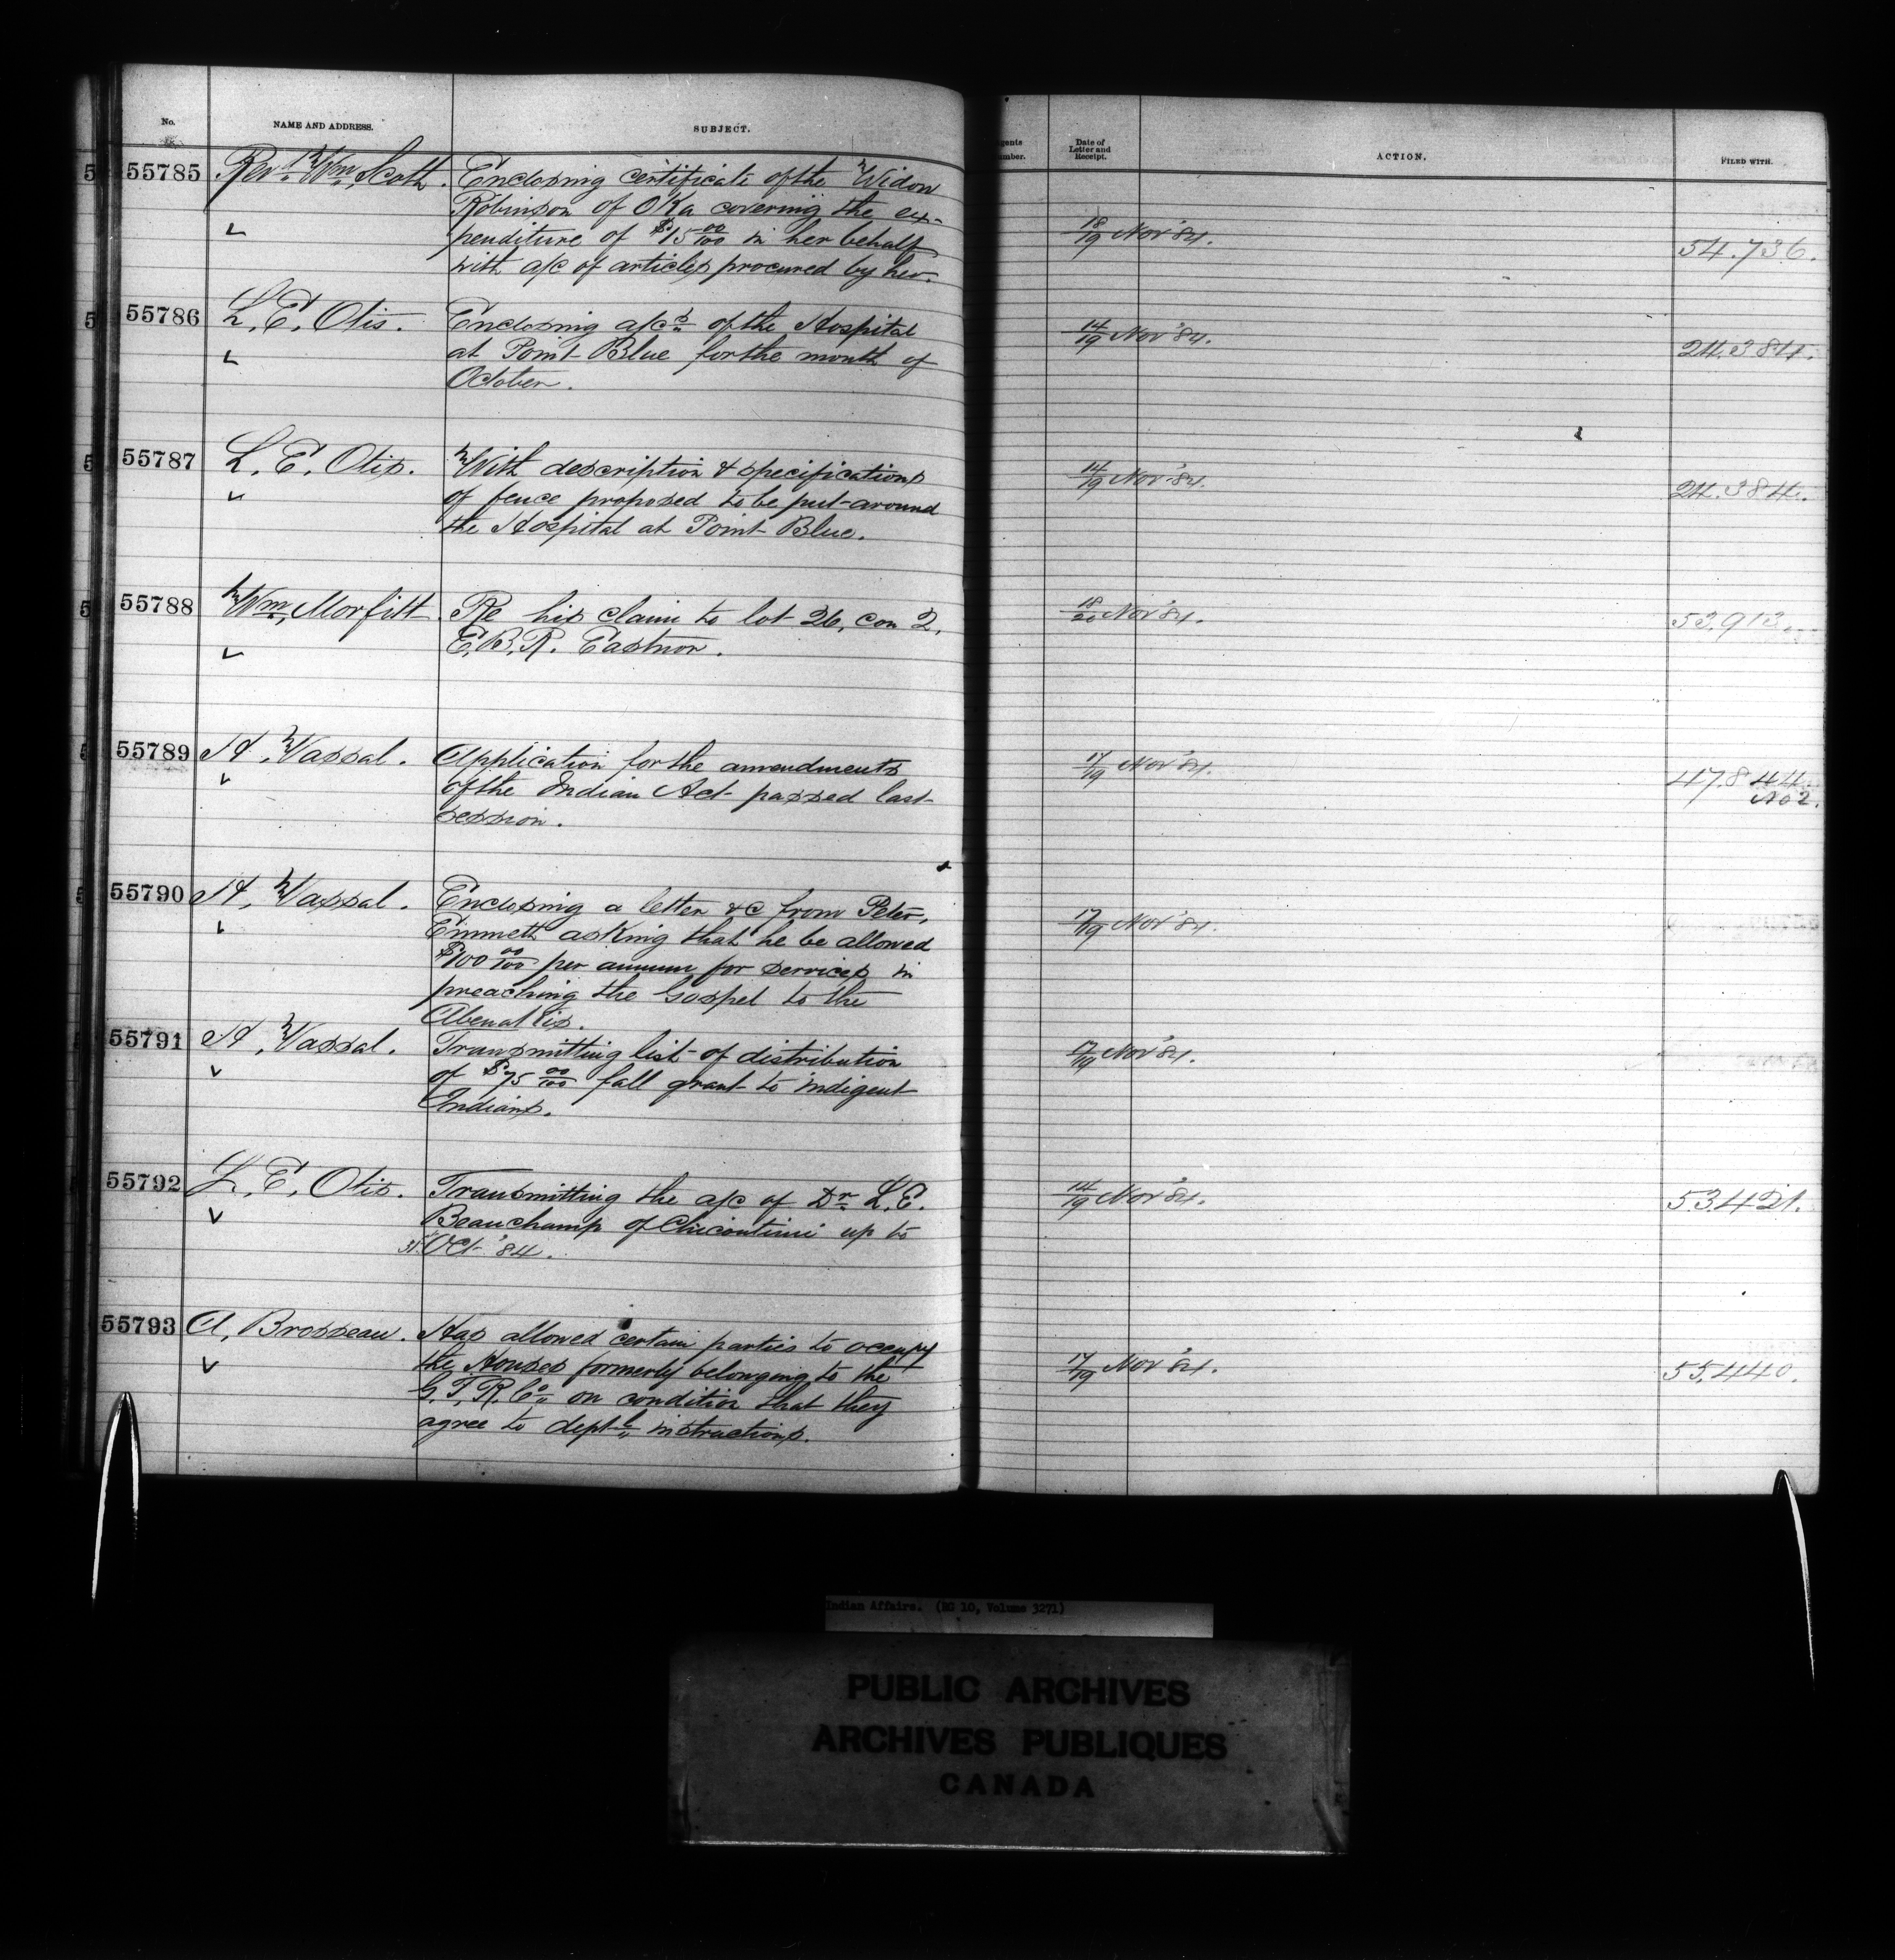 No. NAME AND ADDRESS. SUBJECT.
55785 Revd. Wm. Scott. Enclosing certificate of the Widow
Robinson of Oka covering the ex-
penditure of $15 00/100 in her behalf
with a/c of articles procured by her.
55786 L. E. Otis. Enclosing a/cs of the Hospital
at Point Blue for the month of
October.
55787 L. E. Otis. With description & specifications
of fence proposed to be put around
the Hospital at Point Blue.
55788 Wm. Morfitt. Re his claim to lot 26, con 2,
E. B. R. Eastnor.
55789 H. Vassal. Application for the amendments
of the Indian Act passed last
session.
55790 H. Vassal. Enclosing a letter &c from Peter,
Emmett asking that he be allowed
$100 00/100 per annum for services in
preaching the Gospel to the
Abenakis.
55791 H. Vassal. Transmitting list of distribution
of $75 00/100 fall grant to indigent
Indians.
55792 L. E. Otis. Transmitting the a/c of Dr. L. E.
Beauchamp of Chicoutimi up to
31st Oct '84.
55793 A. Brosseau. Has allowed certain parties to occupy
the Houses formerly belonging to the
G. T. R. Co. on condition that they
agree to deptl. instructions.
gents
mber.
Date of
Letter and
Receipt.
ACTION. FILED WITH.
18/19 Nov '84. 54.736.
14/19 Nov '84. 24.384.
14/19 Nov '84. 24.384.
18/20 Nov '84. 53.913.
17/19 Nov '84. 47.844.
No 2.
17/19 Nov '84.
17/19 Nov '84.
14/19 Nov '84. 53.421.
17/19 Nov '84. 55.440.
Indian Affairs. (RG 10, Volume 3271)
PUBLIC ARCHIVES
ARCHIVES PUBLIQUES
CANADA